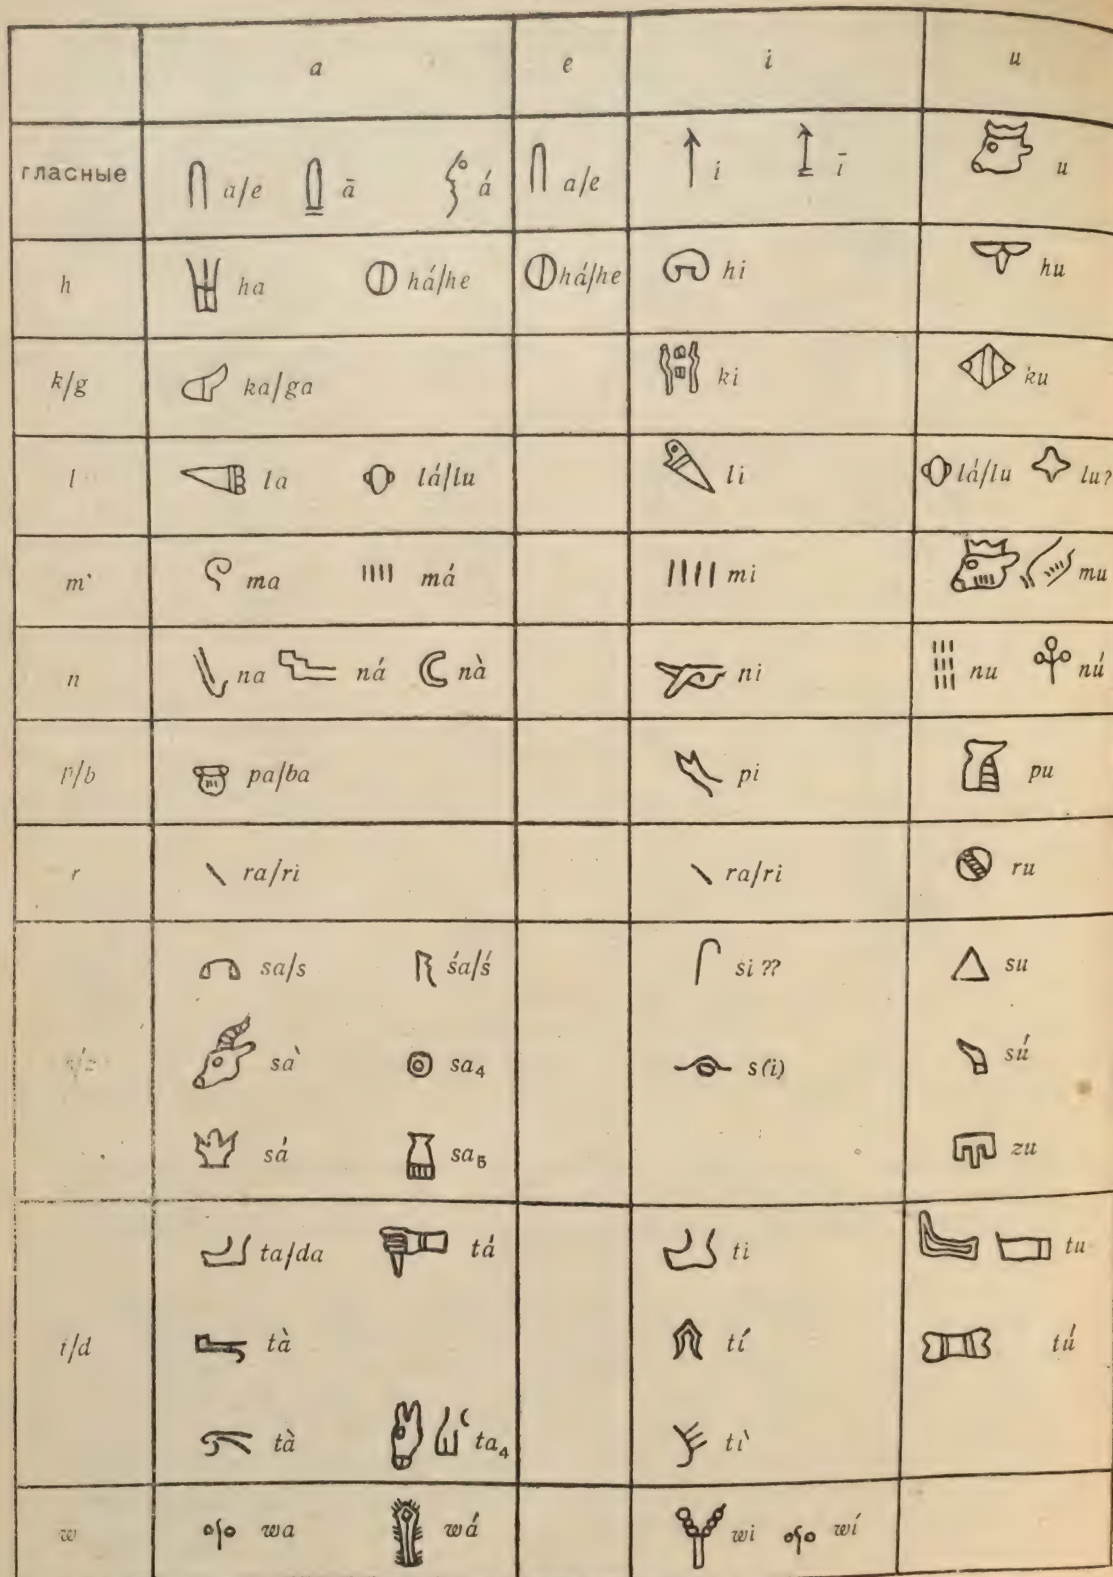 a e i u
гласные a/e ā á a/e i ī u
h ha há/he há/he hi hu
k/g ka/ga ki ku
l la lá/lu li lá/lu lu?
m ma má mi mu
n na ná nà ni nu nú
p/b pa/ba pi pu
r ra/ri ra/ri ru
sa/s śa/ś si ?? su
sà sa₄ s(i) sú
sá sa₅ zu
ta/da tá ti tu
t/d tà tí tú
tà ta₄ tì
w wa wá wi wí